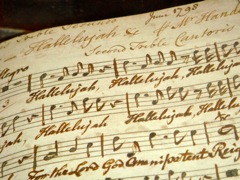 Treble Secundo
June 1790
Hallelujah &c Mr Hand
Second Treble Cantoris
Allegro
Hallelujah, Hallelujah, Hallelujah
Hallelujah, Hallelujah, Hallelujah,
For the Lord God Omnipotent Reig